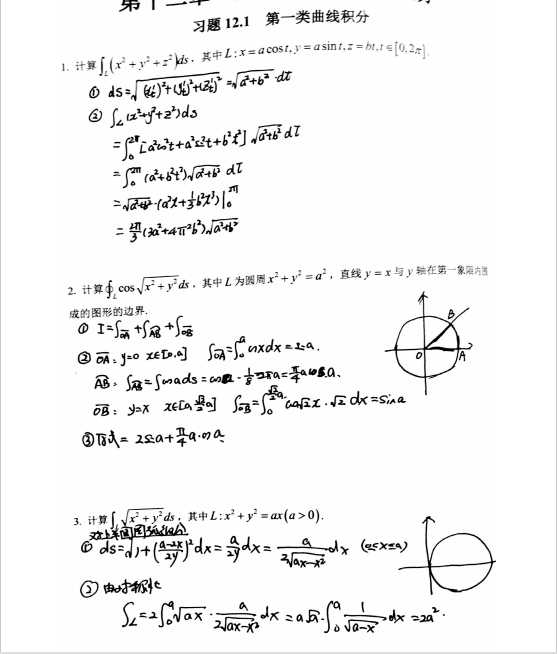 习题 12.1 第一类曲线积分
1. 计算∫_L(x²+y²+z²)ds，其中 L: x = a cos t, y = a sin t, z = bt, t ∈ [0,2π].
① ds=√((x't)²+(y't)²+(z't)²) = √(a²+b²) dt
② ∫_L (x²+y²+z²)ds
=∫_0^{2π} [a²cos²t+a²sin²t+b²t²] √(a²+b²) dt
=∫_0^{2π} (a²+b²t²)√(a²+b²) dt
=√(a²+b²)·(a²t+1/3 b²t³)|_0^{2π}
= 2π/3 (3a²+4π²b²)√(a²+b²)
2. 计算∮_L cos√(x²+y²) ds，其中 L 为圆周 x²+y²=a²，直线 y=x 与 y 轴在第一象限内围
成的图形的边界.
① I=∫_{OA}+∫_{AB}+∫_{OB}
② OA: y=0 x∈[0,a] ∫_{OA}=∫_0^a cosxdx = sin a.
AB: ∫_{AB}=∫cosads = cosa·1/8·2πa=π/4 a cosa.
OB: y=x ∫_{OB}=∫_0^{√2/2 a} cos√2x·√2 dx = sin a
③ 原式= 2sin a+π/4 a·cos a
B
O
A
3. 计算∫_L √(x²+y²) ds，其中 L: x²+y²=ax(a>0).
① ds=√(1+((a-2x)/2y)²) dx = a/2y dx = a/(2√(ax-x²)) dx (0≤x≤a)
② 由对称性
∫_L=2∫_0^a √(ax)·a/(2√(ax-x²)) dx = a√a·∫_0^a 1/√(a-x) dx =2a².